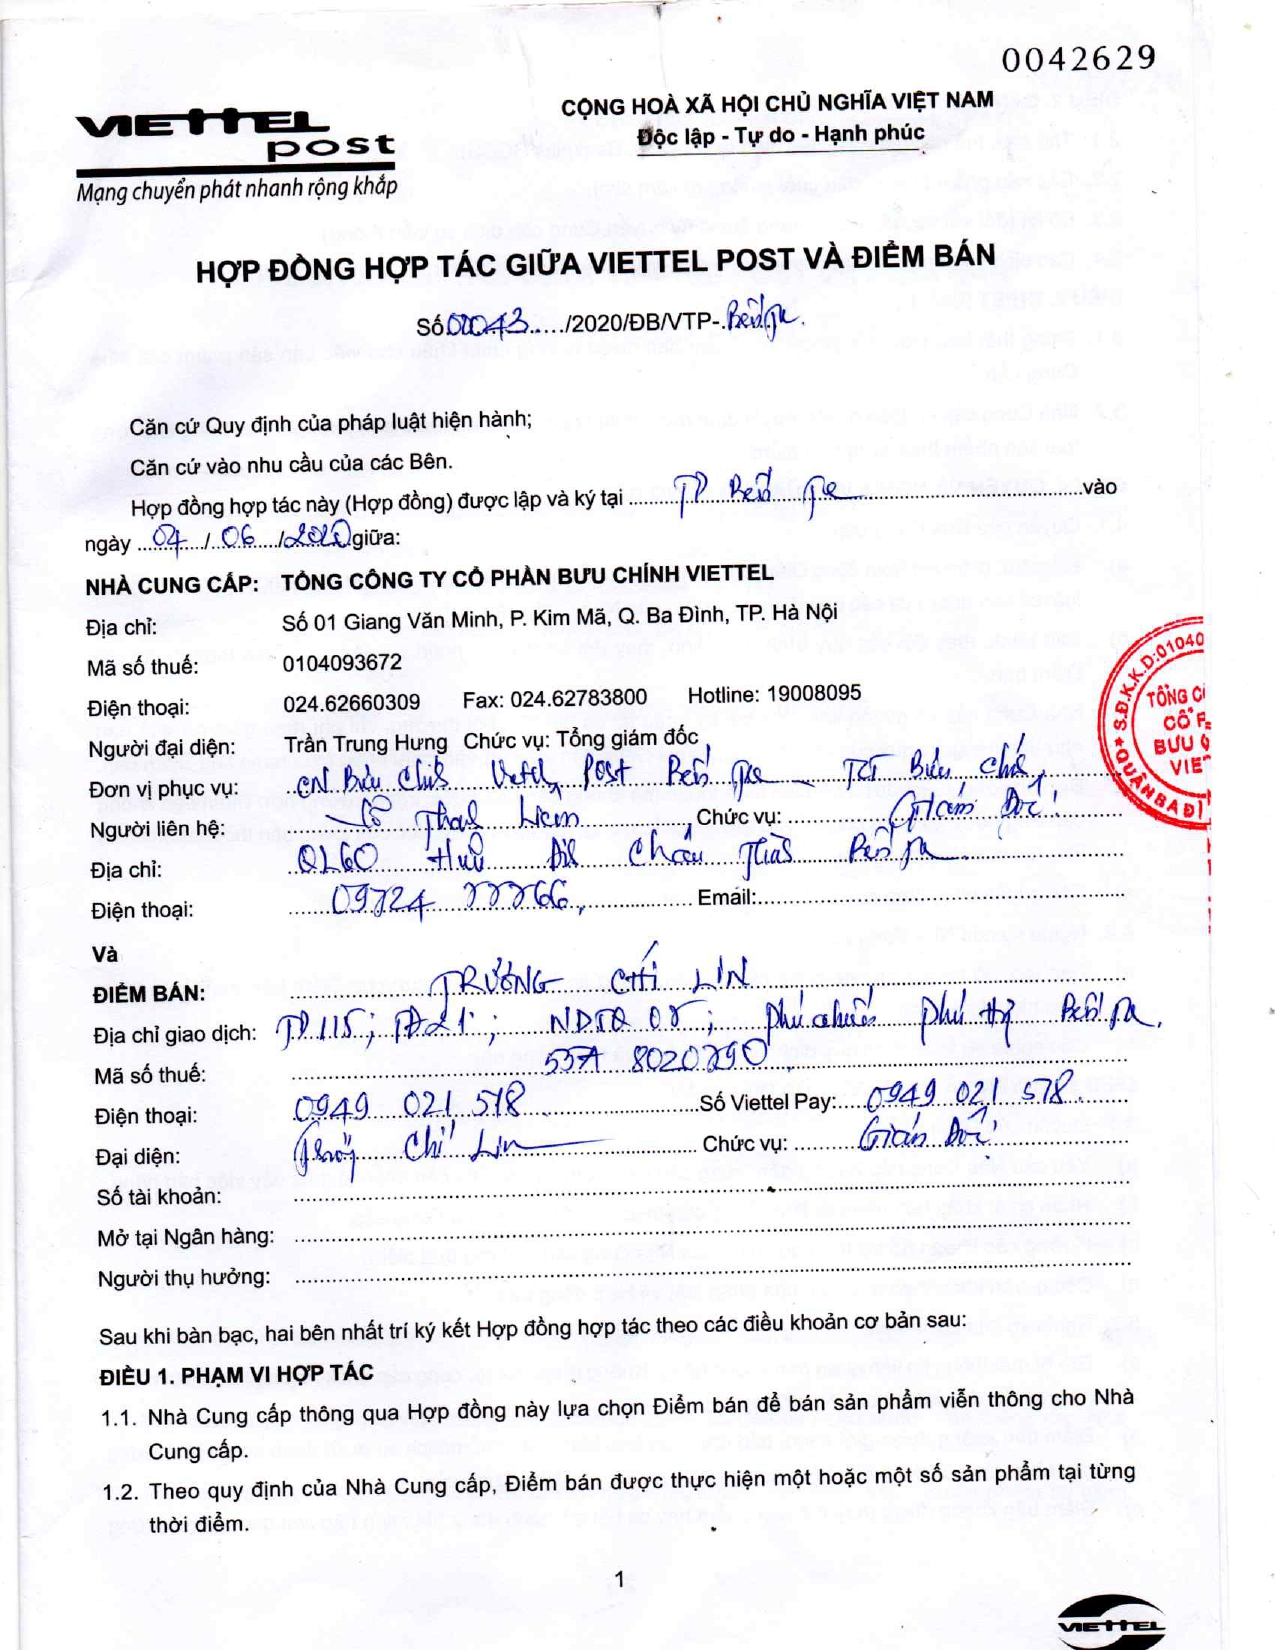 0042629
VIETTEL
post
Mạng chuyển phát nhanh rộng khắp
CỘNG HOÀ XÃ HỘI CHỦ NGHĨA VIỆT NAM
Độc lập - Tự do - Hạnh phúc
HỢP ĐỒNG HỢP TÁC GIỮA VIETTEL POST VÀ ĐIỂM BÁN
Số ...../2020/ĐB/VTP-.Bến Tre.
Căn cứ Quy định của pháp luật hiện hành;
Căn cứ vào nhu cầu của các Bên.
Hợp đồng hợp tác này (Hợp đồng) được lập và ký tại ..... TP Bến Tre .....vào
ngày ..... / 06 / 2020 giữa:
NHÀ CUNG CẤP: TỔNG CÔNG TY CỔ PHẦN BƯU CHÍNH VIETTEL
Địa chỉ: Số 01 Giang Văn Minh, P. Kim Mã, Q. Ba Đình, TP. Hà Nội
Mã số thuế: 0104093672
Điện thoại: 024.62660309 Fax: 024.62783800 Hotline: 19008095
Người đại diện: Trần Trung Hưng Chức vụ: Tổng giám đốc
Đơn vị phục vụ: CN Bưu Chính Viettel Post Bến Tre - TCT Bưu Chính
Người liên hệ: Thanh Liêm Chức vụ: Giám Đốc
Địa chỉ: QL60 Hữu Định Châu Thành Bến Tre
Điện thoại: ..... Email:.....
Và
ĐIỂM BÁN: TRƯƠNG CHÍ LIN
Địa chỉ giao dịch: ..... Phú Bến Tre.
Mã số thuế: 8020290
Điện thoại: 0949 021 578 Số Viettel Pay: 0949 021 578.
Đại diện: Chí Lin Chức vụ: Giám Đốc
Số tài khoản: .....
Mở tại Ngân hàng: .....
Người thụ hưởng: .....
S.Đ.K.K.D:01040
TỔNG C
CỔ P
BƯU
VIE
QUẬN BA Đ
Sau khi bàn bạc, hai bên nhất trí ký kết Hợp đồng hợp tác theo các điều khoản cơ bản sau:
ĐIỀU 1. PHẠM VI HỢP TÁC
1.1. Nhà Cung cấp thông qua Hợp đồng này lựa chọn Điểm bán để bán sản phẩm viễn thông cho Nhà
Cung cấp.
1.2. Theo quy định của Nhà Cung cấp, Điểm bán được thực hiện một hoặc một số sản phẩm tại từng
thời điểm.
1
VIETTEL